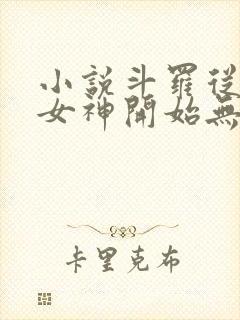 小説斗羅從
女神開始無
卡里克布